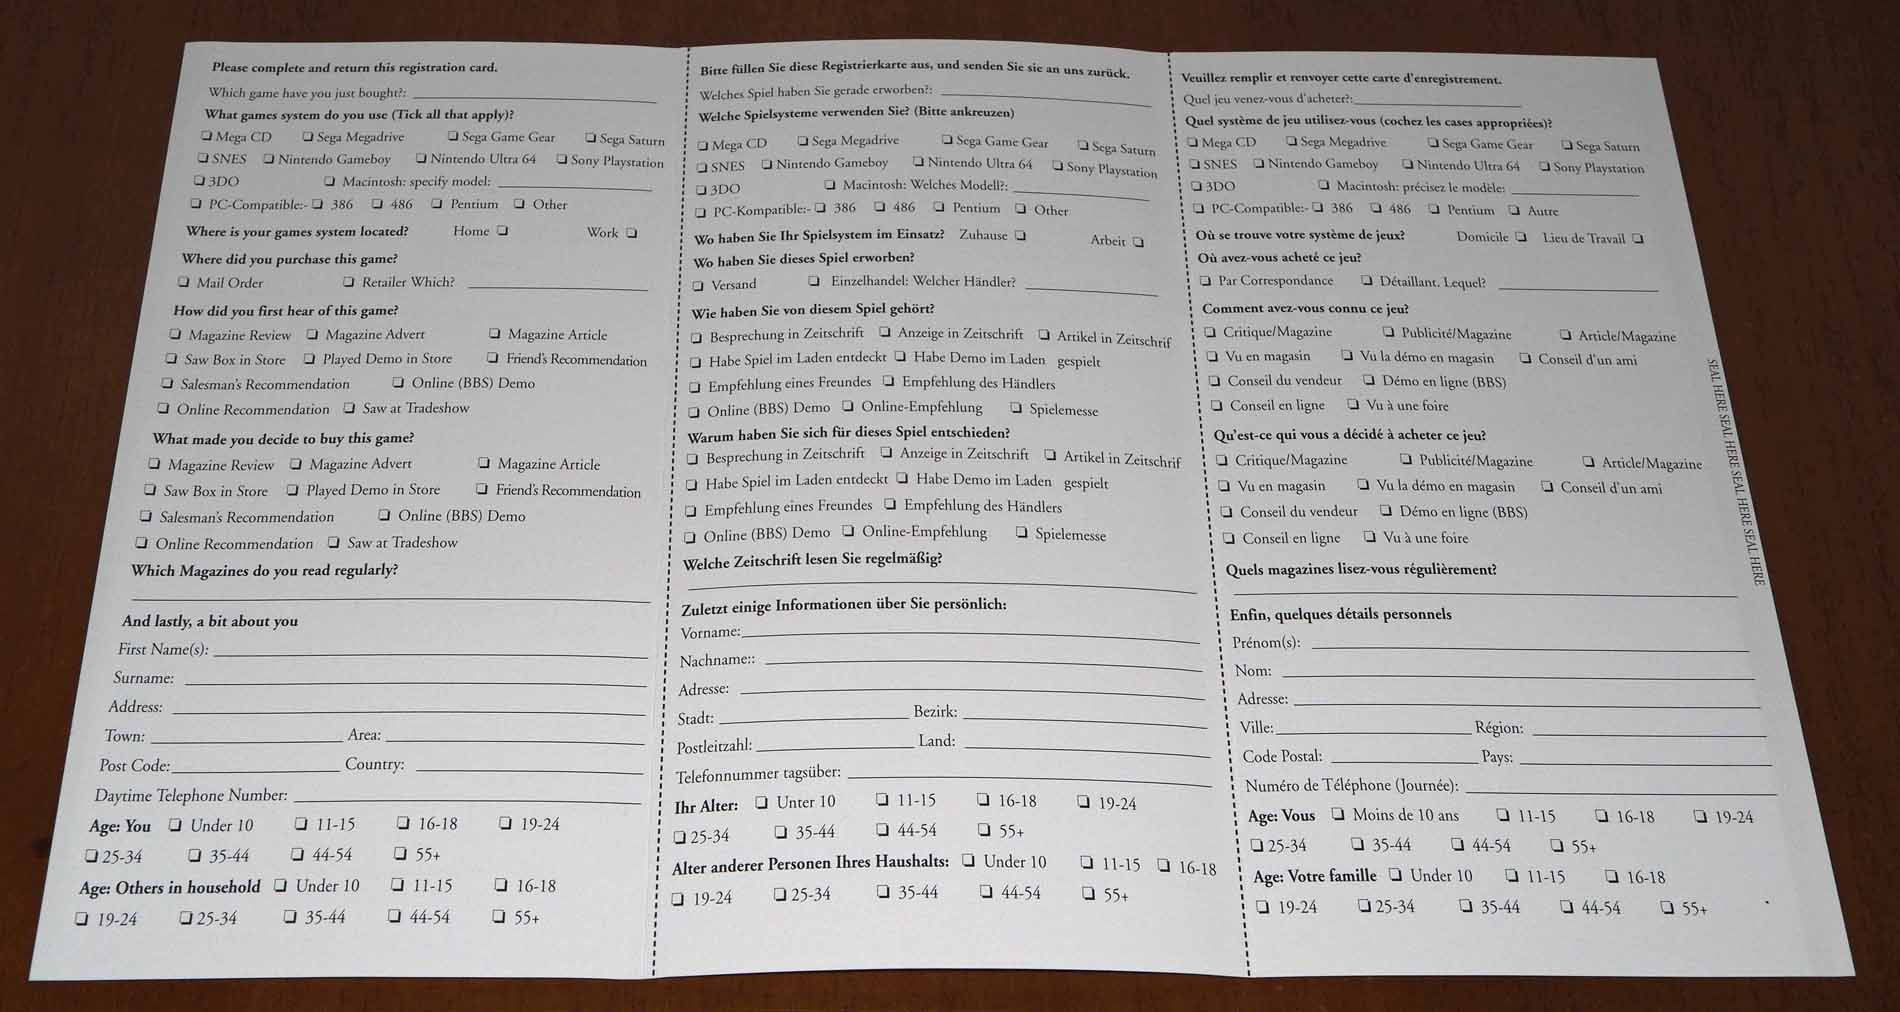 Please complete and return this registration card.
Which game have you just bought?:
What games system do you use (Tick all that apply)?
Mega CD Sega Megadrive Sega Game Gear Sega Saturn
SNES Nintendo Gameboy Nintendo Ultra 64 Sony Playstation
3DO Macintosh: specify model:
PC-Compatible:- 386 486 Pentium Other
Where is your games system located? Home Work
Where did you purchase this game?
Mail Order Retailer Which?
How did you first hear of this game?
Magazine Review Magazine Advert Magazine Article
Saw Box in Store Played Demo in Store Friend's Recommendation
Salesman's Recommendation Online (BBS) Demo
Online Recommendation Saw at Tradeshow
What made you decide to buy this game?
Magazine Review Magazine Advert Magazine Article
Saw Box in Store Played Demo in Store Friend's Recommendation
Salesman's Recommendation Online (BBS) Demo
Online Recommendation Saw at Tradeshow
Which Magazines do you read regularly?
And lastly, a bit about you
First Name(s):
Surname:
Address:
Town: Area:
Post Code: Country:
Daytime Telephone Number:
Age: You Under 10 11-15 16-18 19-24
25-34 35-44 44-54 55+
Age: Others in household Under 10 11-15 16-18
19-24 25-34 35-44 44-54 55+
Bitte füllen Sie diese Registrierkarte aus, und senden Sie sie an uns zurück.
Welches Spiel haben Sie gerade erworben?:
Welche Spielsysteme verwenden Sie? (Bitte ankreuzen)
Mega CD Sega Megadrive Sega Game Gear Sega Saturn
SNES Nintendo Gameboy Nintendo Ultra 64 Sony Playstation
3DO Macintosh: Welches Modell?:
PC-Kompatible:- 386 486 Pentium Other
Wo haben Sie Ihr Spielsystem im Einsatz? Zuhause Arbeit
Wo haben Sie dieses Spiel erworben?
Versand Einzelhandel: Welcher Händler?
Wie haben Sie von diesem Spiel gehört?
Besprechung in Zeitschrift Anzeige in Zeitschrift Artikel in Zeitschrif
Habe Spiel im Laden entdeckt Habe Demo im Laden gespielt
Empfehlung eines Freundes Empfehlung des Händlers
Online (BBS) Demo Online-Empfehlung Spielemesse
Warum haben Sie sich für dieses Spiel entschieden?
Besprechung in Zeitschrift Anzeige in Zeitschrift Artikel in Zeitschrif
Habe Spiel im Laden entdeckt Habe Demo im Laden gespielt
Empfehlung eines Freundes Empfehlung des Händlers
Online (BBS) Demo Online-Empfehlung Spielemesse
Welche Zeitschrift lesen Sie regelmäßig?
Zuletzt einige Informationen über Sie persönlich:
Vorname:
Nachname::
Adresse:
Stadt: Bezirk:
Postleitzahl: Land:
Telefonnummer tagsüber:
Ihr Alter: Unter 10 11-15 16-18 19-24
25-34 35-44 44-54 55+
Alter anderer Personen Ihres Haushalts: Under 10 11-15 16-18
19-24 25-34 35-44 44-54 55+
Veuillez remplir et renvoyer cette carte d'enregistrement.
Quel jeu venez-vous d'acheter?:
Quel système de jeu utilisez-vous (cochez les cases appropriées)?
Mega CD Sega Megadrive Sega Game Gear Sega Saturn
SNES Nintendo Gameboy Nintendo Ultra 64 Sony Playstation
3DO Macintosh: précisez le modèle:
PC-Compatible:- 386 486 Pentium Autre
Où se trouve votre système de jeux? Domicile Lieu de Travail
Où avez-vous acheté ce jeu?
Par Correspondance Détaillant. Lequel?
Comment avez-vous connu ce jeu?
Critique/Magazine Publicité/Magazine Article/Magazine
Vu en magasin Vu la démo en magasin Conseil d'un ami
Conseil du vendeur Démo en ligne (BBS)
Conseil en ligne Vu à une foire
Qu'est-ce qui vous a décidé à acheter ce jeu?
Critique/Magazine Publicité/Magazine Article/Magazine
Vu en magasin Vu la démo en magasin Conseil d'un ami
Conseil du vendeur Démo en ligne (BBS)
Conseil en ligne Vu à une foire
Quels magazines lisez-vous régulièrement?
Enfin, quelques détails personnels
Prénom(s):
Nom:
Adresse:
Ville: Région:
Code Postal: Pays:
Numéro de Téléphone (Journée):
Age: Vous Moins de 10 ans 11-15 16-18 19-24
25-34 35-44 44-54 55+
Age: Votre famille Under 10 11-15 16-18
19-24 25-34 35-44 44-54 55+
SEAL HERE SEAL HERE SEAL HERE SEAL HERE SEAL HERE